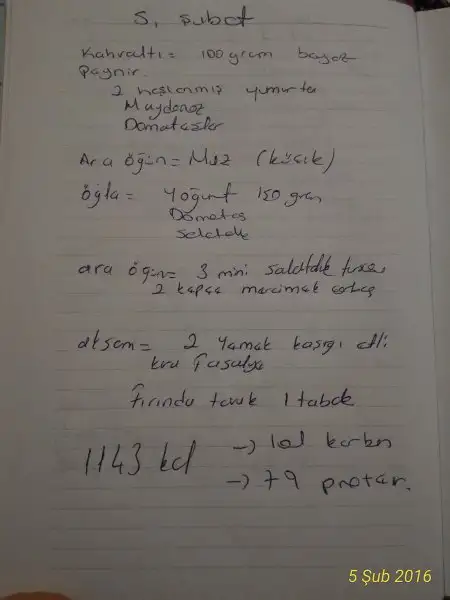 5, şubat
Kahvaltı = 100 gram beyaz
Peynir.
2 haşlanmış yumurta
Maydonoz
Domatesler
Ara öğün = Muz (küçük)
öğle = Yoğurt 150 gram
Domates
Salatalık
ara öğün = 3 mini salatalık turşu
2 kepçe mercimek çorbası
akşam = 2 Yemek kaşığı etli
kuru fasulye
fırında tavuk 1 tabak
1143 kcl → 101 karbon
→ 79 protein.
5 Şub 2016